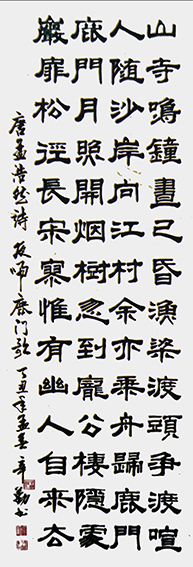 山寺鳴鐘晝已昏漁梁渡頭爭渡喧
人随沙岸向江村余亦乘舟歸鹿門
鹿門月照開烟樹忽到龐公棲隱處
巖扉松徑長寂寥惟有幽人自来去
唐孟浩然詩 夜歸鹿门歌 丁丑年孟春 辛勤书